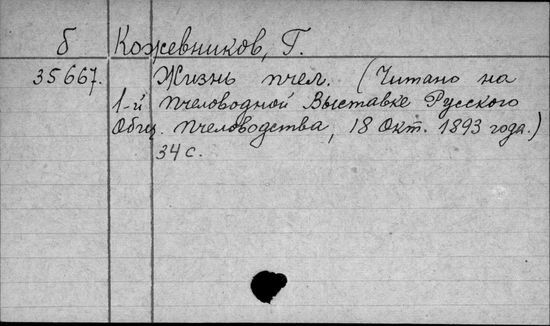 б Кожевников, Г.
35667. Жизнь пчел. (Читано на
1-й пчеловодной Выставке Русского
Общ. пчеловодства, 18 Окт. 1893 года.)
34 с.